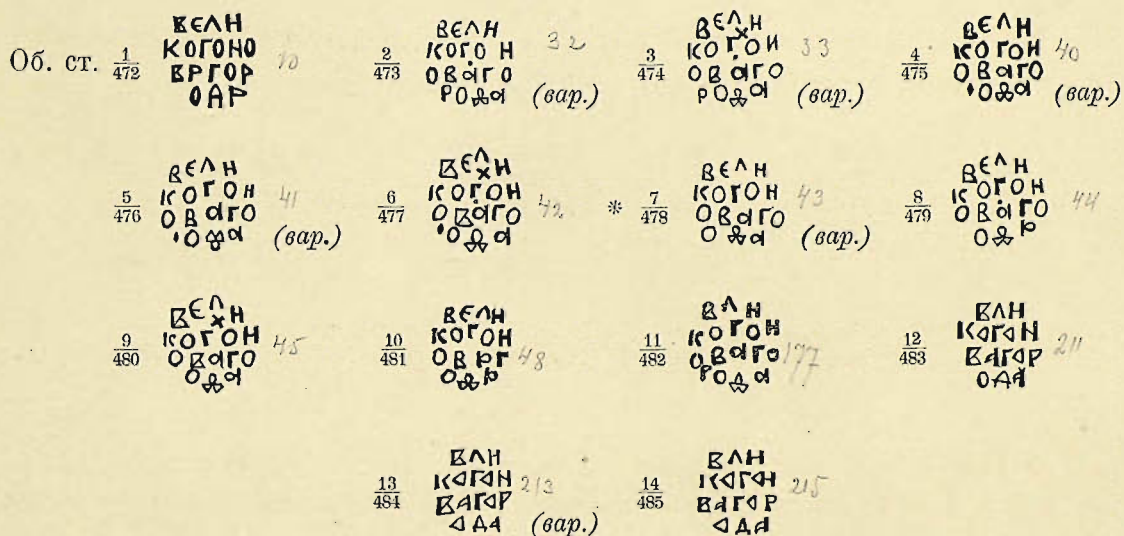 Об. ст.
1
472
ВЕЛН
КОГОНО
ВРГОР
ОАР
10
2
473
ВЕЛН
КОГОН
ОВАГО
РОДА
32
(вар.)
3
474
ВЕЛН
КОГОН
ОВАГО
РОДА
33
(вар.)
4
475
ВЕЛН
КОГОН
ОВАГО
ОДА
40
(вар.)
5
476
ВЕЛН
КОГОН
ОВАГО
ОДА
41
(вар.)
6
477
ВЕЛН
КОГОН
ОВАГО
ОДА
42
* 7
478
ВЕЛН
КОГОН
ОВАГО
ОДА
43
(вар.)
8
479
ВЕЛН
КОГОН
ОВАГО
ОДР
44
9
480
ВЕЛН
КОГОН
ОВАГО
ОДА
45
10
481
ВЕЛН
КОГОН
ОВРГ
ОДР
48
11
482
ВЛН
КОГОН
ОВАГО
РОДА
177
12
483
ВЛН
КОГОН
ВАГОР
ОДА
211
13
484
ВЛН
КОГОН
ВАГОР
ОДА
213
(вар.)
14
485
ВЛН
КОГОН
ВАГОР
ОДА
215